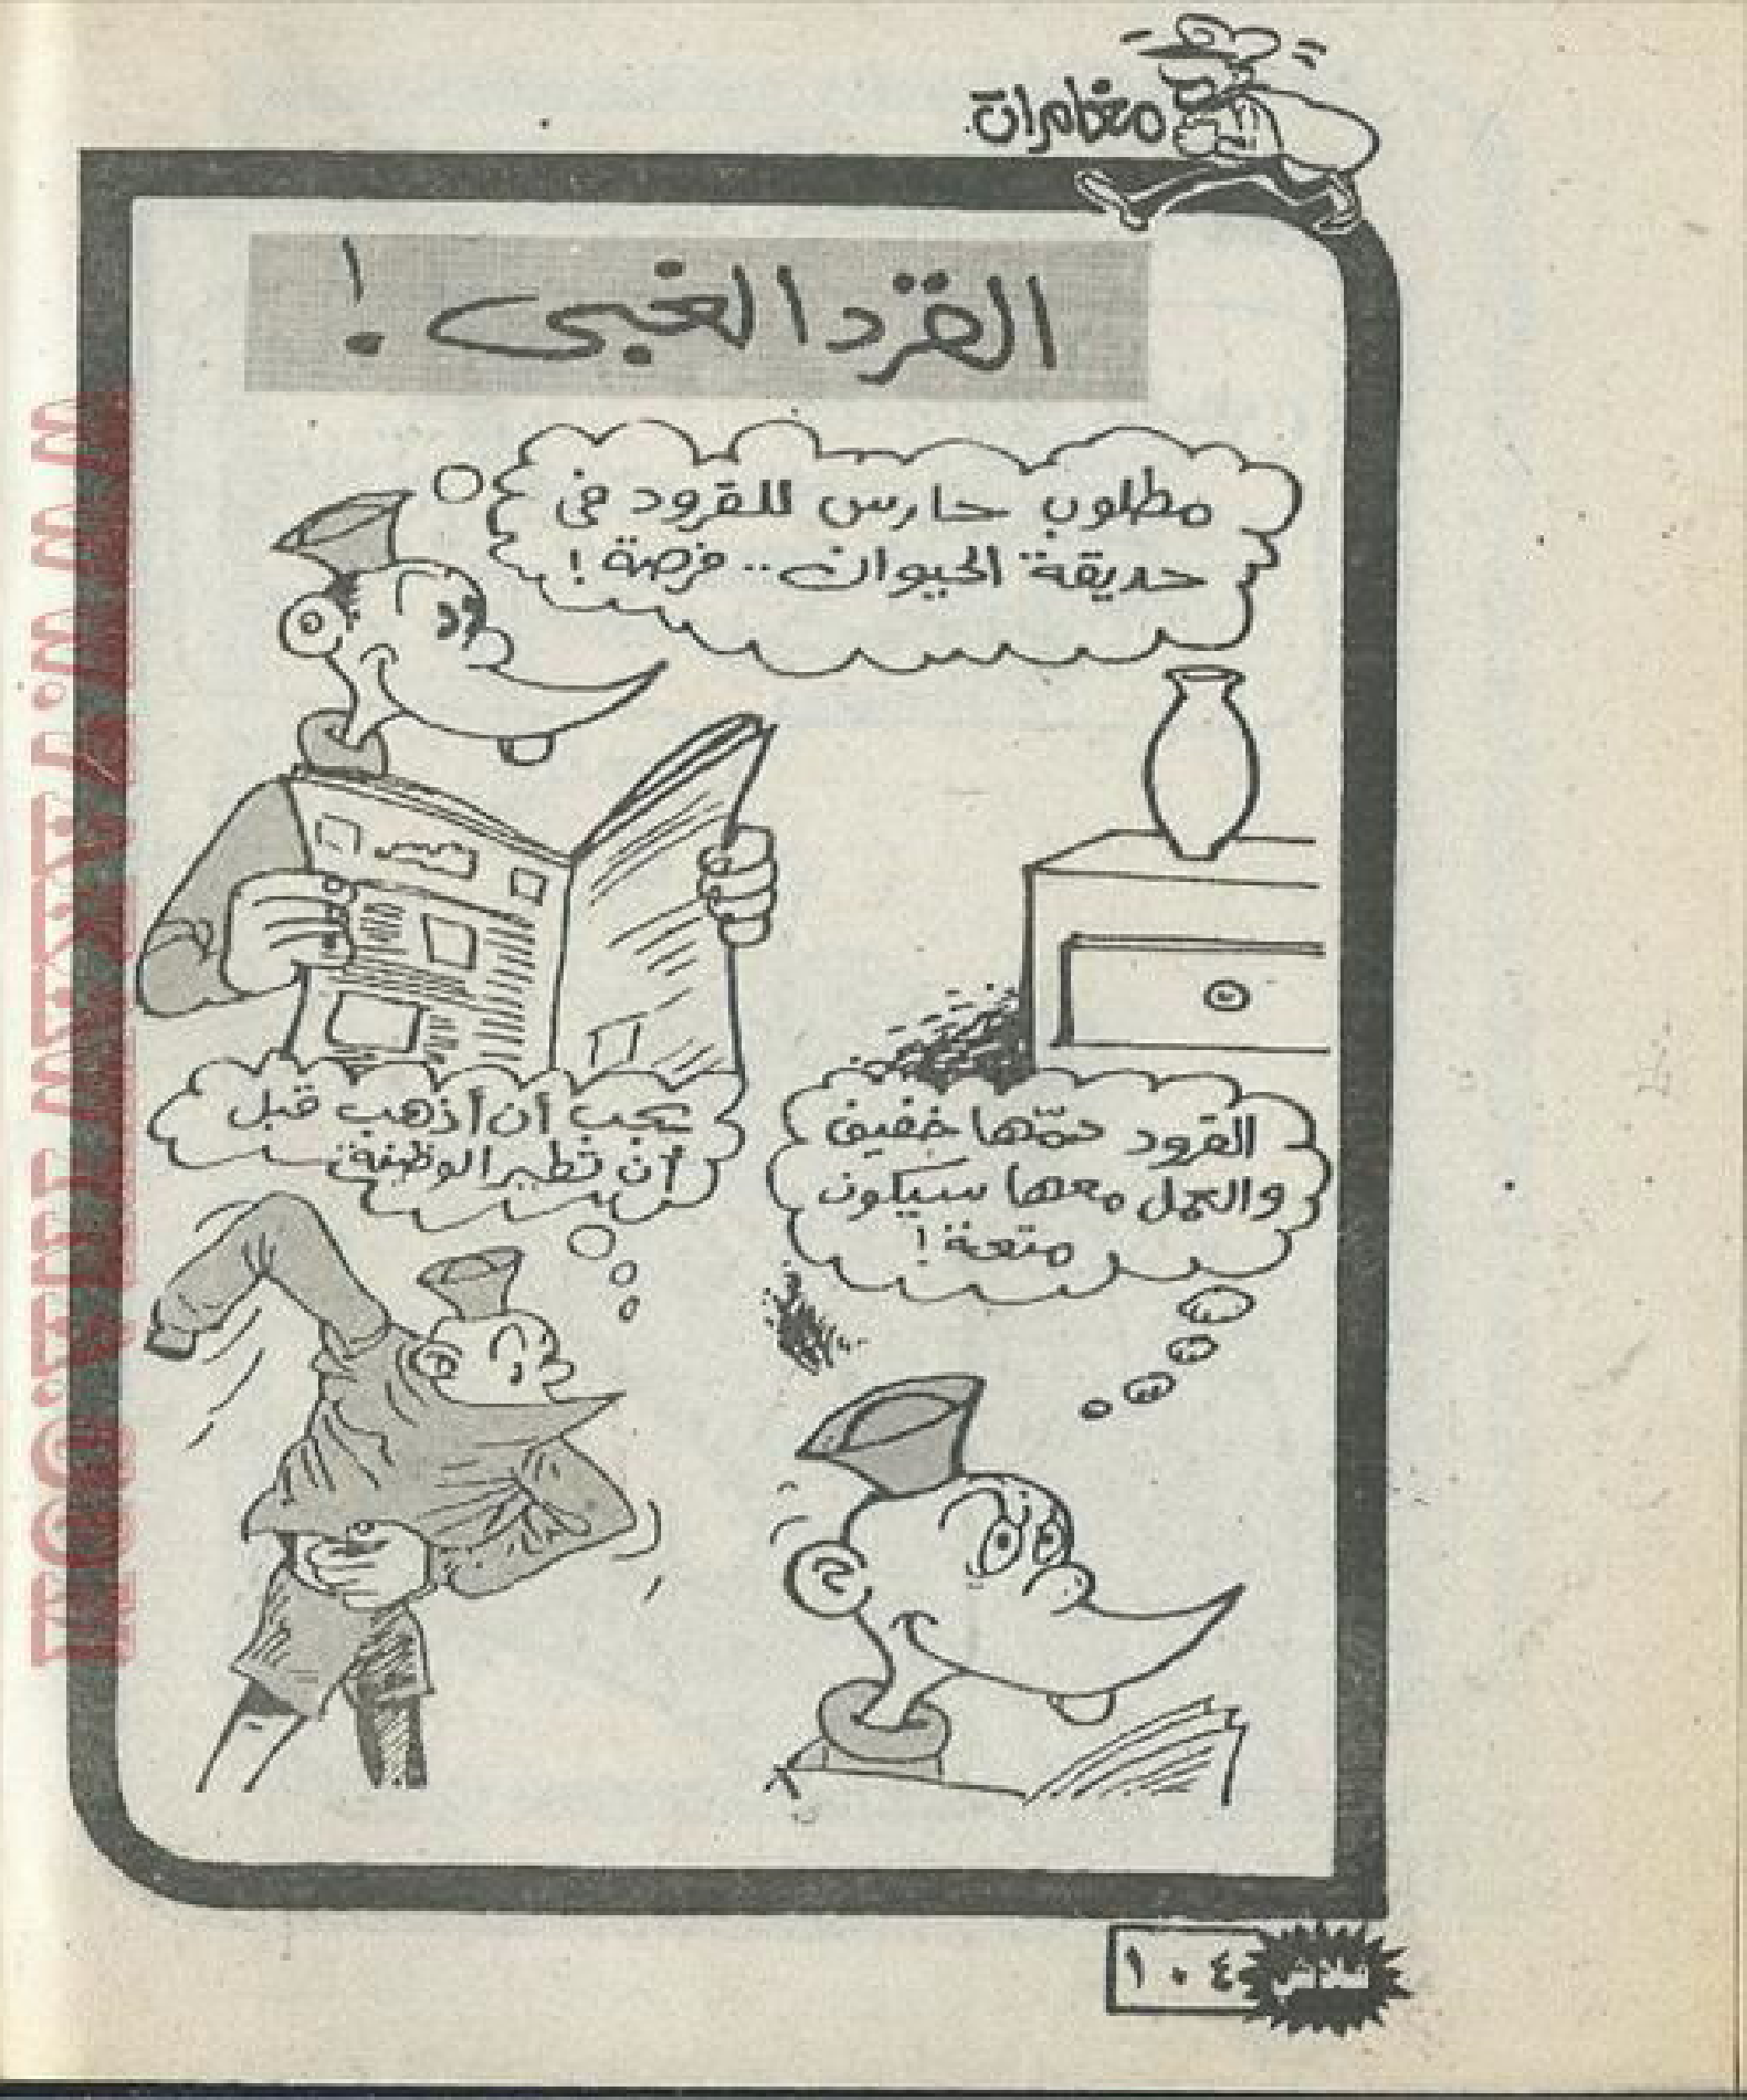 مغامرات
القرد الغبى !
مطلوب حارس للقرود فى
حديقة الحيوان .. فرصة !
القرود دمّها خفيف
والعمل معها سيكون
متعة !
يجب أن أذهب قبل
أن تطير الوظيفة
فلاش
١٠٤